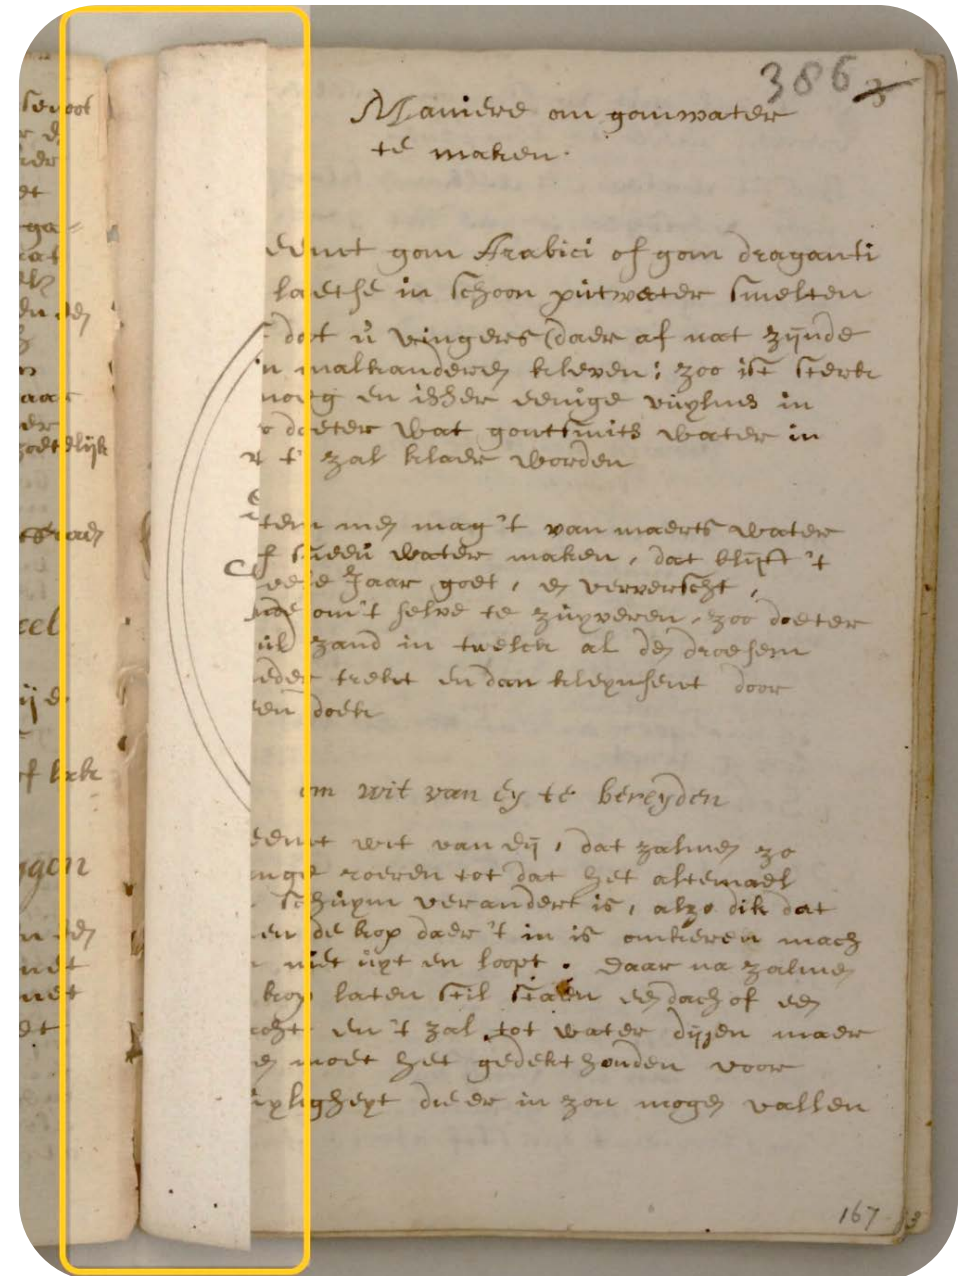 386
Maniere om gomwater
te maken.
eemt gom Arabici of gom draganti
laethe in schoon putwater smelten
dat u vingers (daer af nat zijnde
n malkanderen kleven; zoo ist sterk
noeg en isser eenige vuylnis in
o doeter wat goutsmits water in
t' zal klaer worden
tem men mag 't van maerts water
f sneeu water maken, dat blijft 't
Jaar goet, en ververscht,
om't selve te zuyveren, zoo doeter
zand in twelck al den droesem
eder trekt en dan kleynsent door
en doek
om wit van ey te bereyden
eemt wit van eij, dat zalmen zo
nge roeren tot dat het altemael
schuym verandert is, alzo dik dat
en de kop daer 't in is omkeren mach
niet uyt en loopt. Daar na zalmen
kop laten stil staen een dach of een
acht en 't zal tot water dijen maer
en moet het gedekt houden voor
uyligheyt die er in zou mogen vallen
167